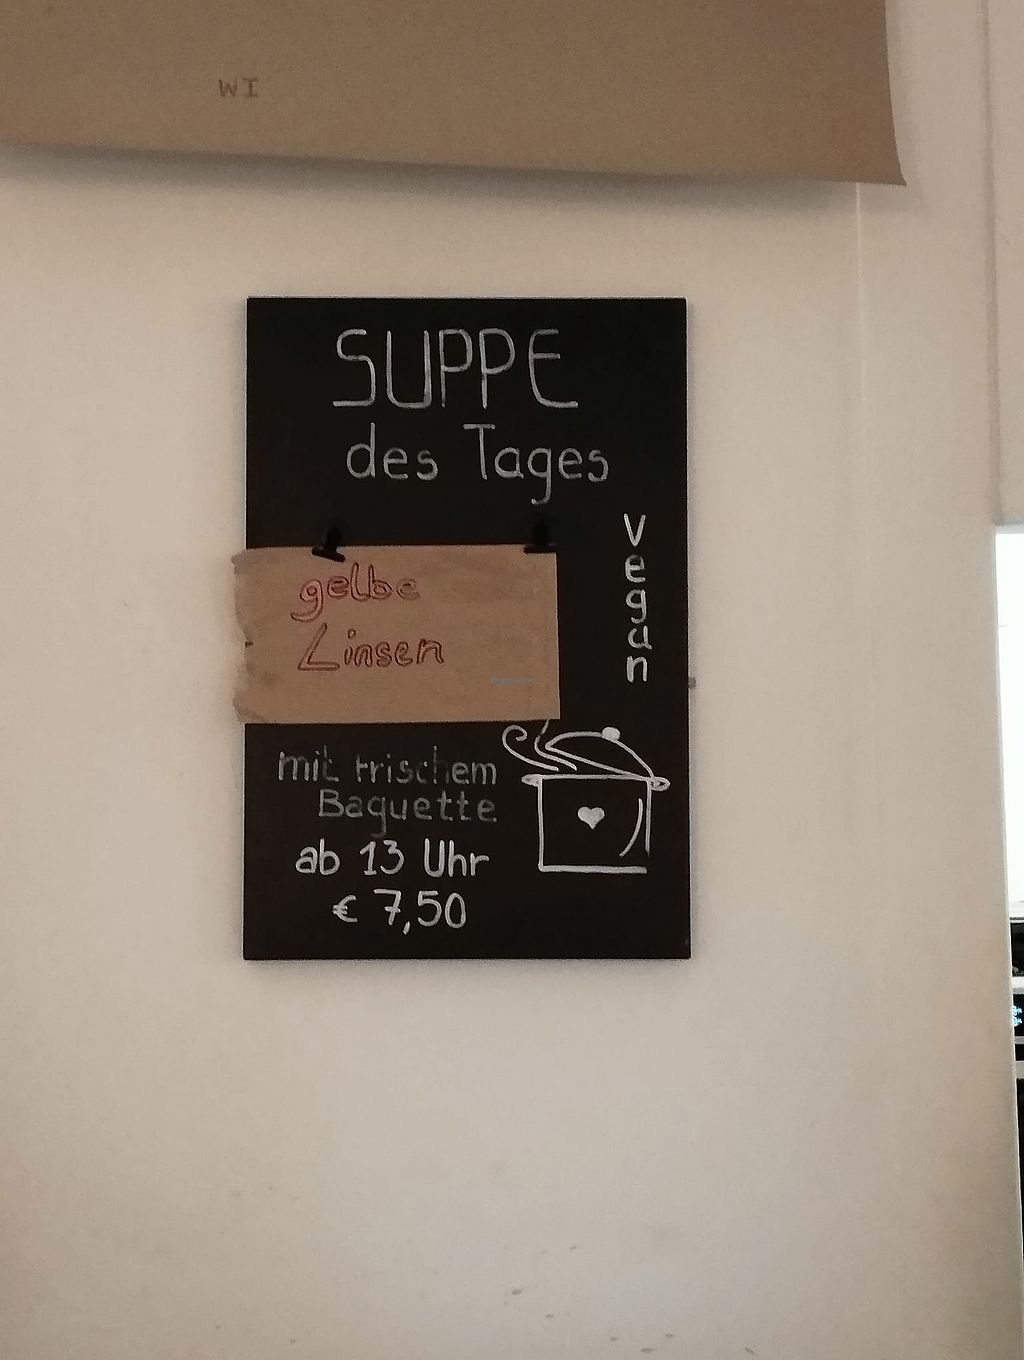 WI
SUPPE
des Tages
vegan
gelbe
Linsen
mit frischem
Baguette
ab 13 Uhr
€ 7,50